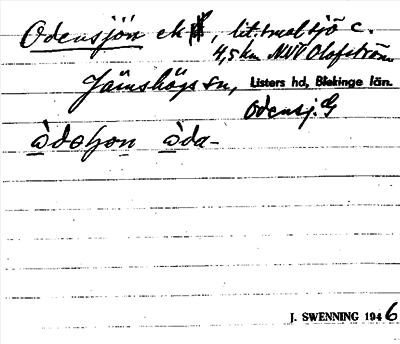 Odensjön ek, lit. insjö c.
4,5 km NNV Olofström
Jämshögs sn, Listers hd, Blekinge län.
Odensj. G
J. SWENNING 1946